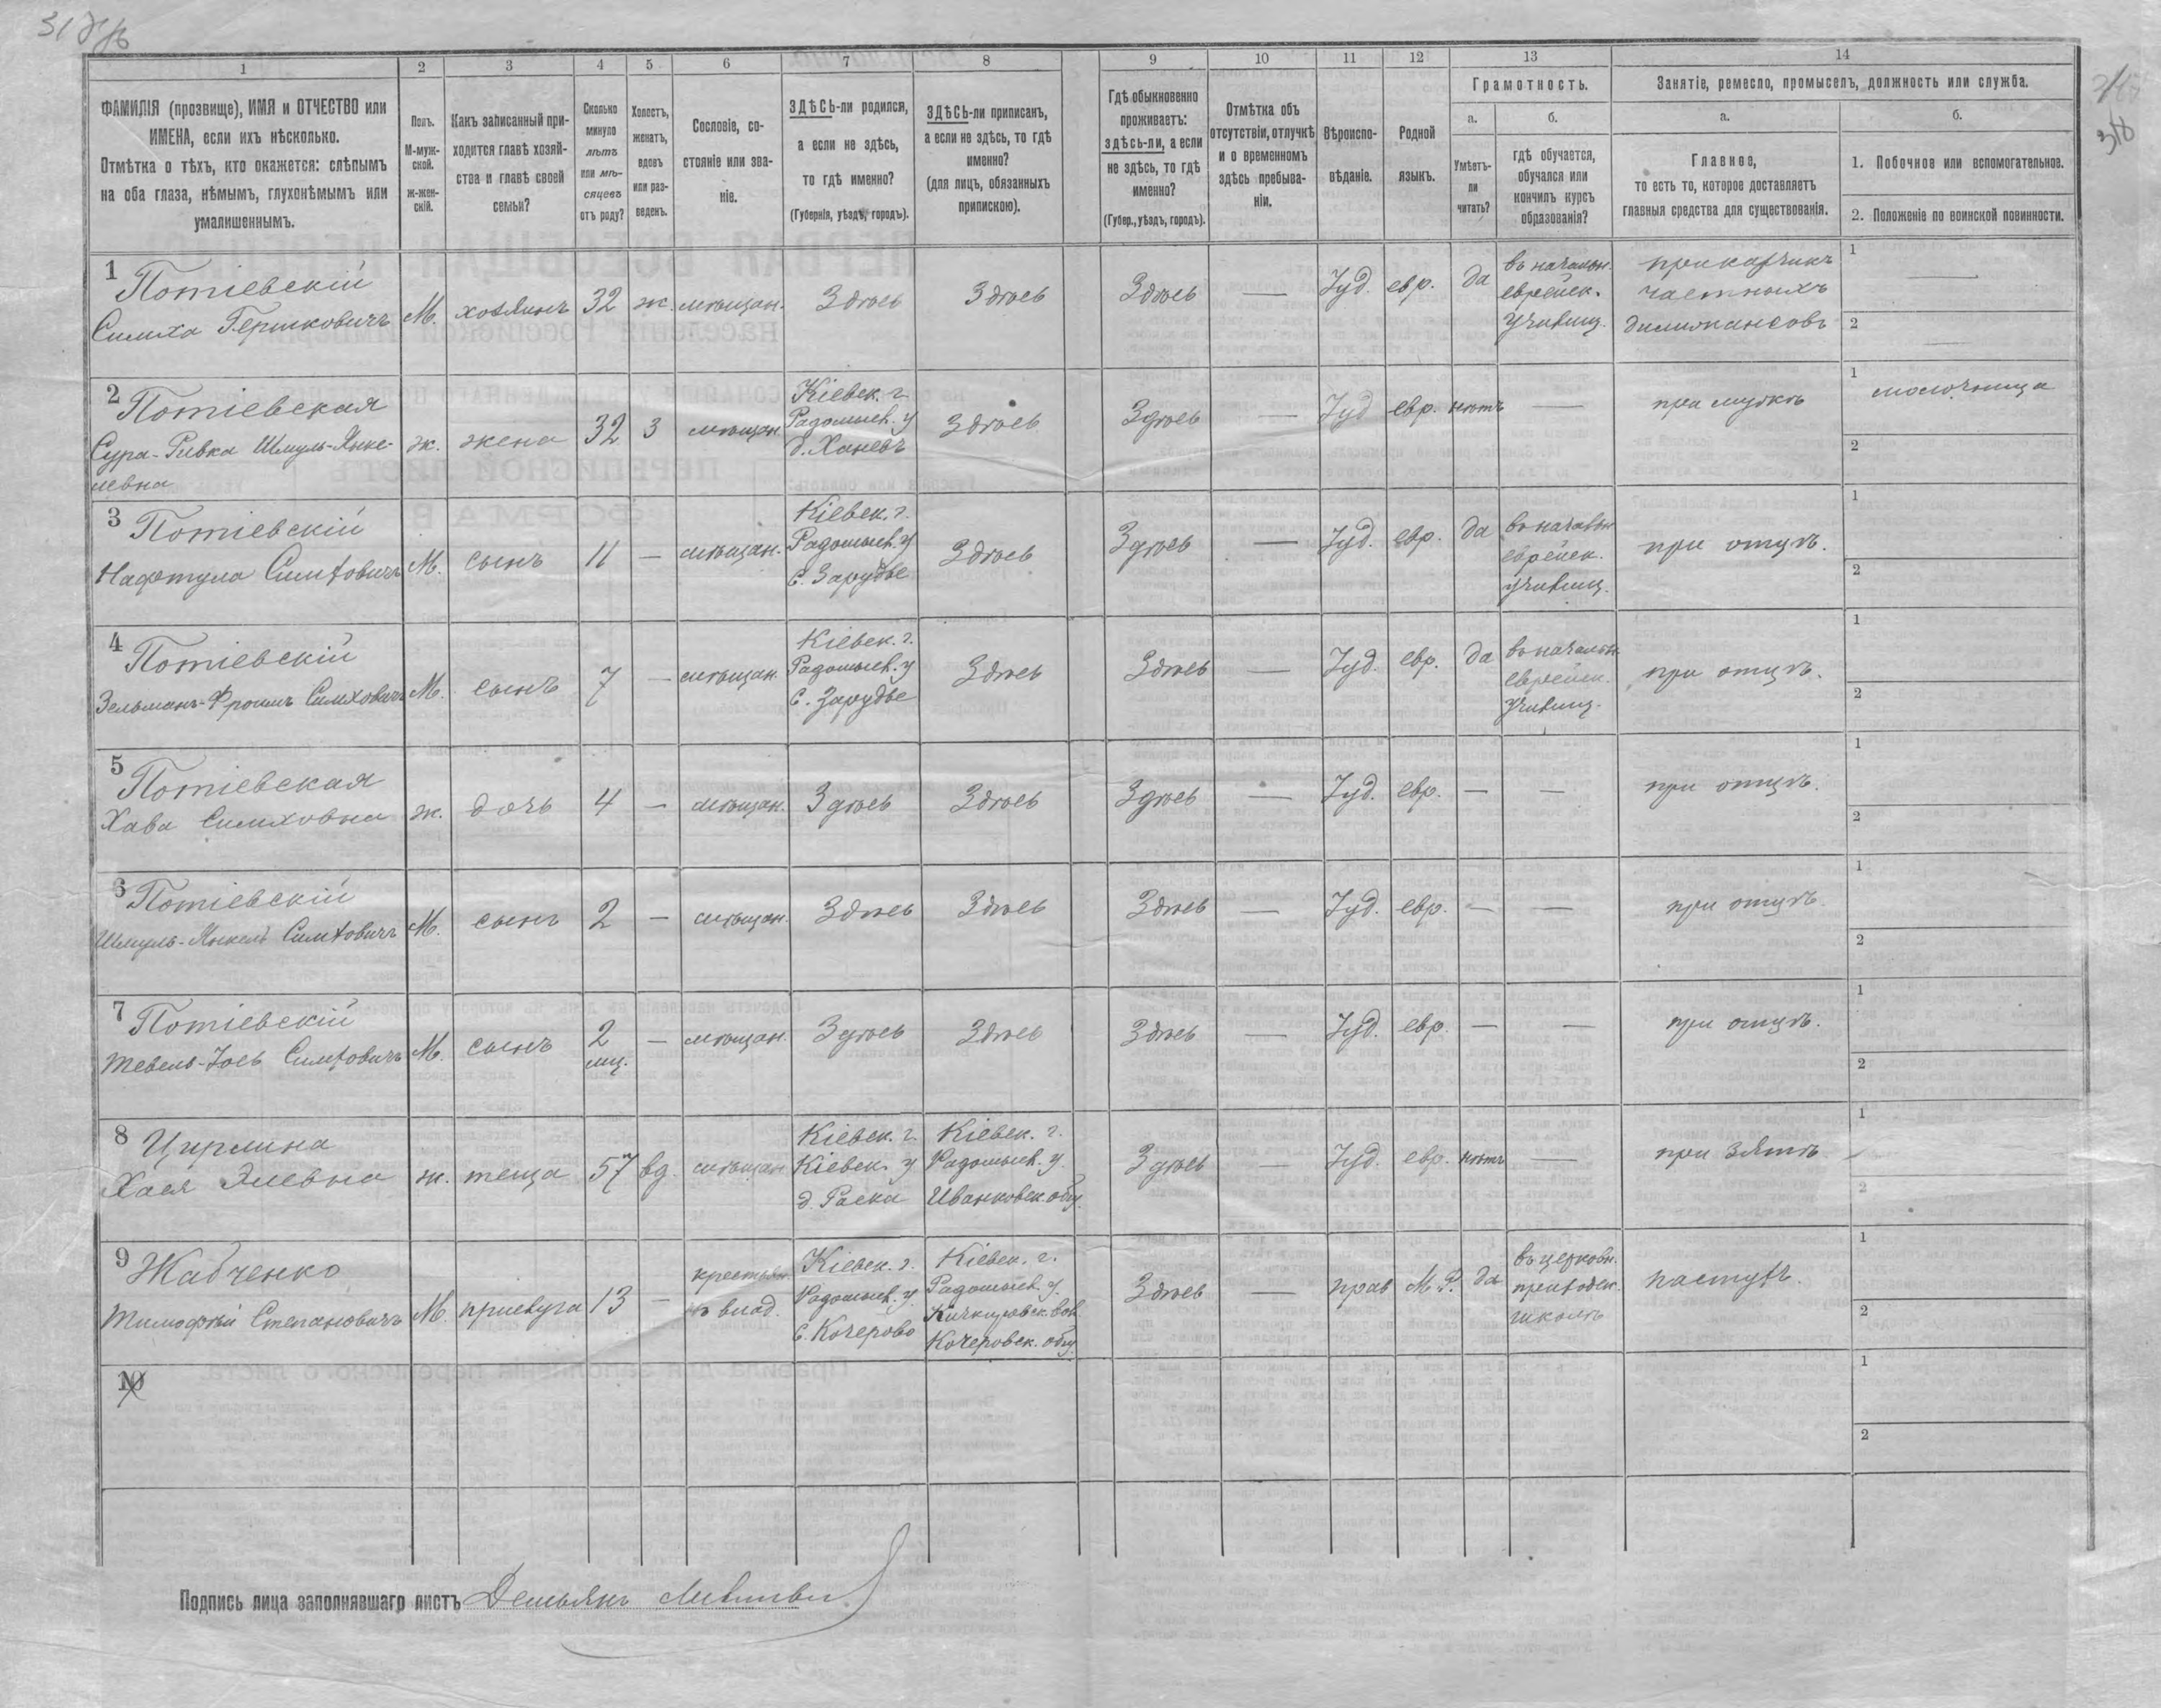 31 об
318
1 2 3 4 5 6 7 8 9 10 11 12 13 14
ФАМИЛІЯ (прозвище), ИМЯ и ОТЧЕСТВО или
ИМЕНА, если ихъ нѣсколько.
Отмѣтка о тѣхъ, кто окажется: слѣпымъ
на оба глаза, нѣмымъ, глухонѣмымъ или
умалишеннымъ.
Полъ.
М-муж-
ской.
ж-жен-
скій.
Какъ записанный при-
ходится главѣ хозяй-
ства и главѣ своей
семьи?
Сколько
минуло
лѣтъ
или мѣ-
сяцевъ
отъ роду?
Холостъ,
женатъ,
вдовъ
или раз-
веденъ.
Сословіе, со-
стояніе или зва-
ніе.
ЗДѢСЬ-ли родился,
а если не здѣсь,
то гдѣ именно?
(Губернія, уѣздъ, городъ).
ЗДѢСЬ-ли приписанъ,
а если не здѣсь, то гдѣ
именно?
(для лицъ, обязанныхъ
припискою).
Гдѣ обыкновенно
проживаетъ:
здѣсь-ли, а если
не здѣсь, то гдѣ
именно?
(Губер., уѣздъ, городъ).
Отмѣтка объ
отсутствіи, отлучкѣ
и о временномъ
здѣсь пребыва-
ніи.
Вѣроиспо-
вѣданіе.
Родной
языкъ.
Грамотность.
а.
Умѣетъ-
ли
читать?
б.
гдѣ обучается,
обучался или
кончилъ курсъ
образованія?
Занятіе, ремесло, промыселъ, должность или служба.
а.
Главное,
то есть то, которое доставляетъ
главныя средства для существованія.
б.
1. Побочное или вспомогательное.
2. Положеніе по воинской повинности.
1
Потіевскій
Симха Гершковичъ
М. хозяинъ 32 ж. мѣщан. Здѣсь Здѣсь Здѣсь — Іуд. евр. да
въ начальн.
еврейск.
училищ.
прикащикъ
частныхъ
дилижансовъ
1 —
2 —
2
Потіевская
Сура-Ривка Шмуль-Янке-
левна
ж. жена 32 З мѣщан.
Кіевск. г.
Радомысл. у
д. Ханевъ
Здѣсь Здѣсь — Іуд евр. нѣтъ — при мужѣ
1 молочница
2
3
Потіевскій
Нафтула Симховичъ
М. сынъ 11 — мѣщан.
Кіевск. г.
Радомысл. у
с. Зарудье
Здѣсь Здѣсь — Іуд. евр. да
въ начальн
еврейск.
училищ.
при отцѣ.
1
2
4
Потіевскій
Зельманъ-Фроимъ Симховичъ
М. сынъ 7 — мѣщан.
Кіевск. г.
Радомысл. у
с. Зарудье
Здѣсь Здѣсь — Іуд. евр. да
въ начальн
еврейск.
училищ.
при отцѣ.
1
2
5
Потіевская
Хава Симховна
ж. дочь 4 — мѣщан. Здѣсь Здѣсь Здѣсь — Іуд. евр. — — при отцѣ.
1
2
6
Потіевскій
Шмуль-Янкель Симховичъ
М. сынъ 2 — мѣщан. Здѣсь Здѣсь Здѣсь — Іуд. евр. — — при отцѣ.
1
2
7
Потіевскій
Тевель-Іось Симховичъ
М. сынъ 2
мц.
— мѣщан. Здѣсь Здѣсь Здѣсь — Іуд. евр. — — при отцѣ.
1
2
8
Цирлина
Хася Элевна
ж. теща 57 вд. мѣщан
Кіевск. г.
Кіевск. у
д. Раска
Кіевск. г.
Радомысл. у.
Иванковск. общ.
Здѣсь — Іуд. евр. нѣтъ — при зятѣ
1
2
9
Жабченко
Тимофѣй Степановичъ
М. прислуга 13 —
крестьян.
влад.
Кіевск. г.
Радомысл. у.
с. Кочерово
Кіевск. г.
Радомысл. у.
Кичкировск. вол.
Кочеровск. общ.
Здѣсь — прав М. Р. да
въ церковн.
приходск.
школѣ
пастухъ.
1
2
10
1
2
1
Подпись лица заполнявшаго листъ Демьянъ